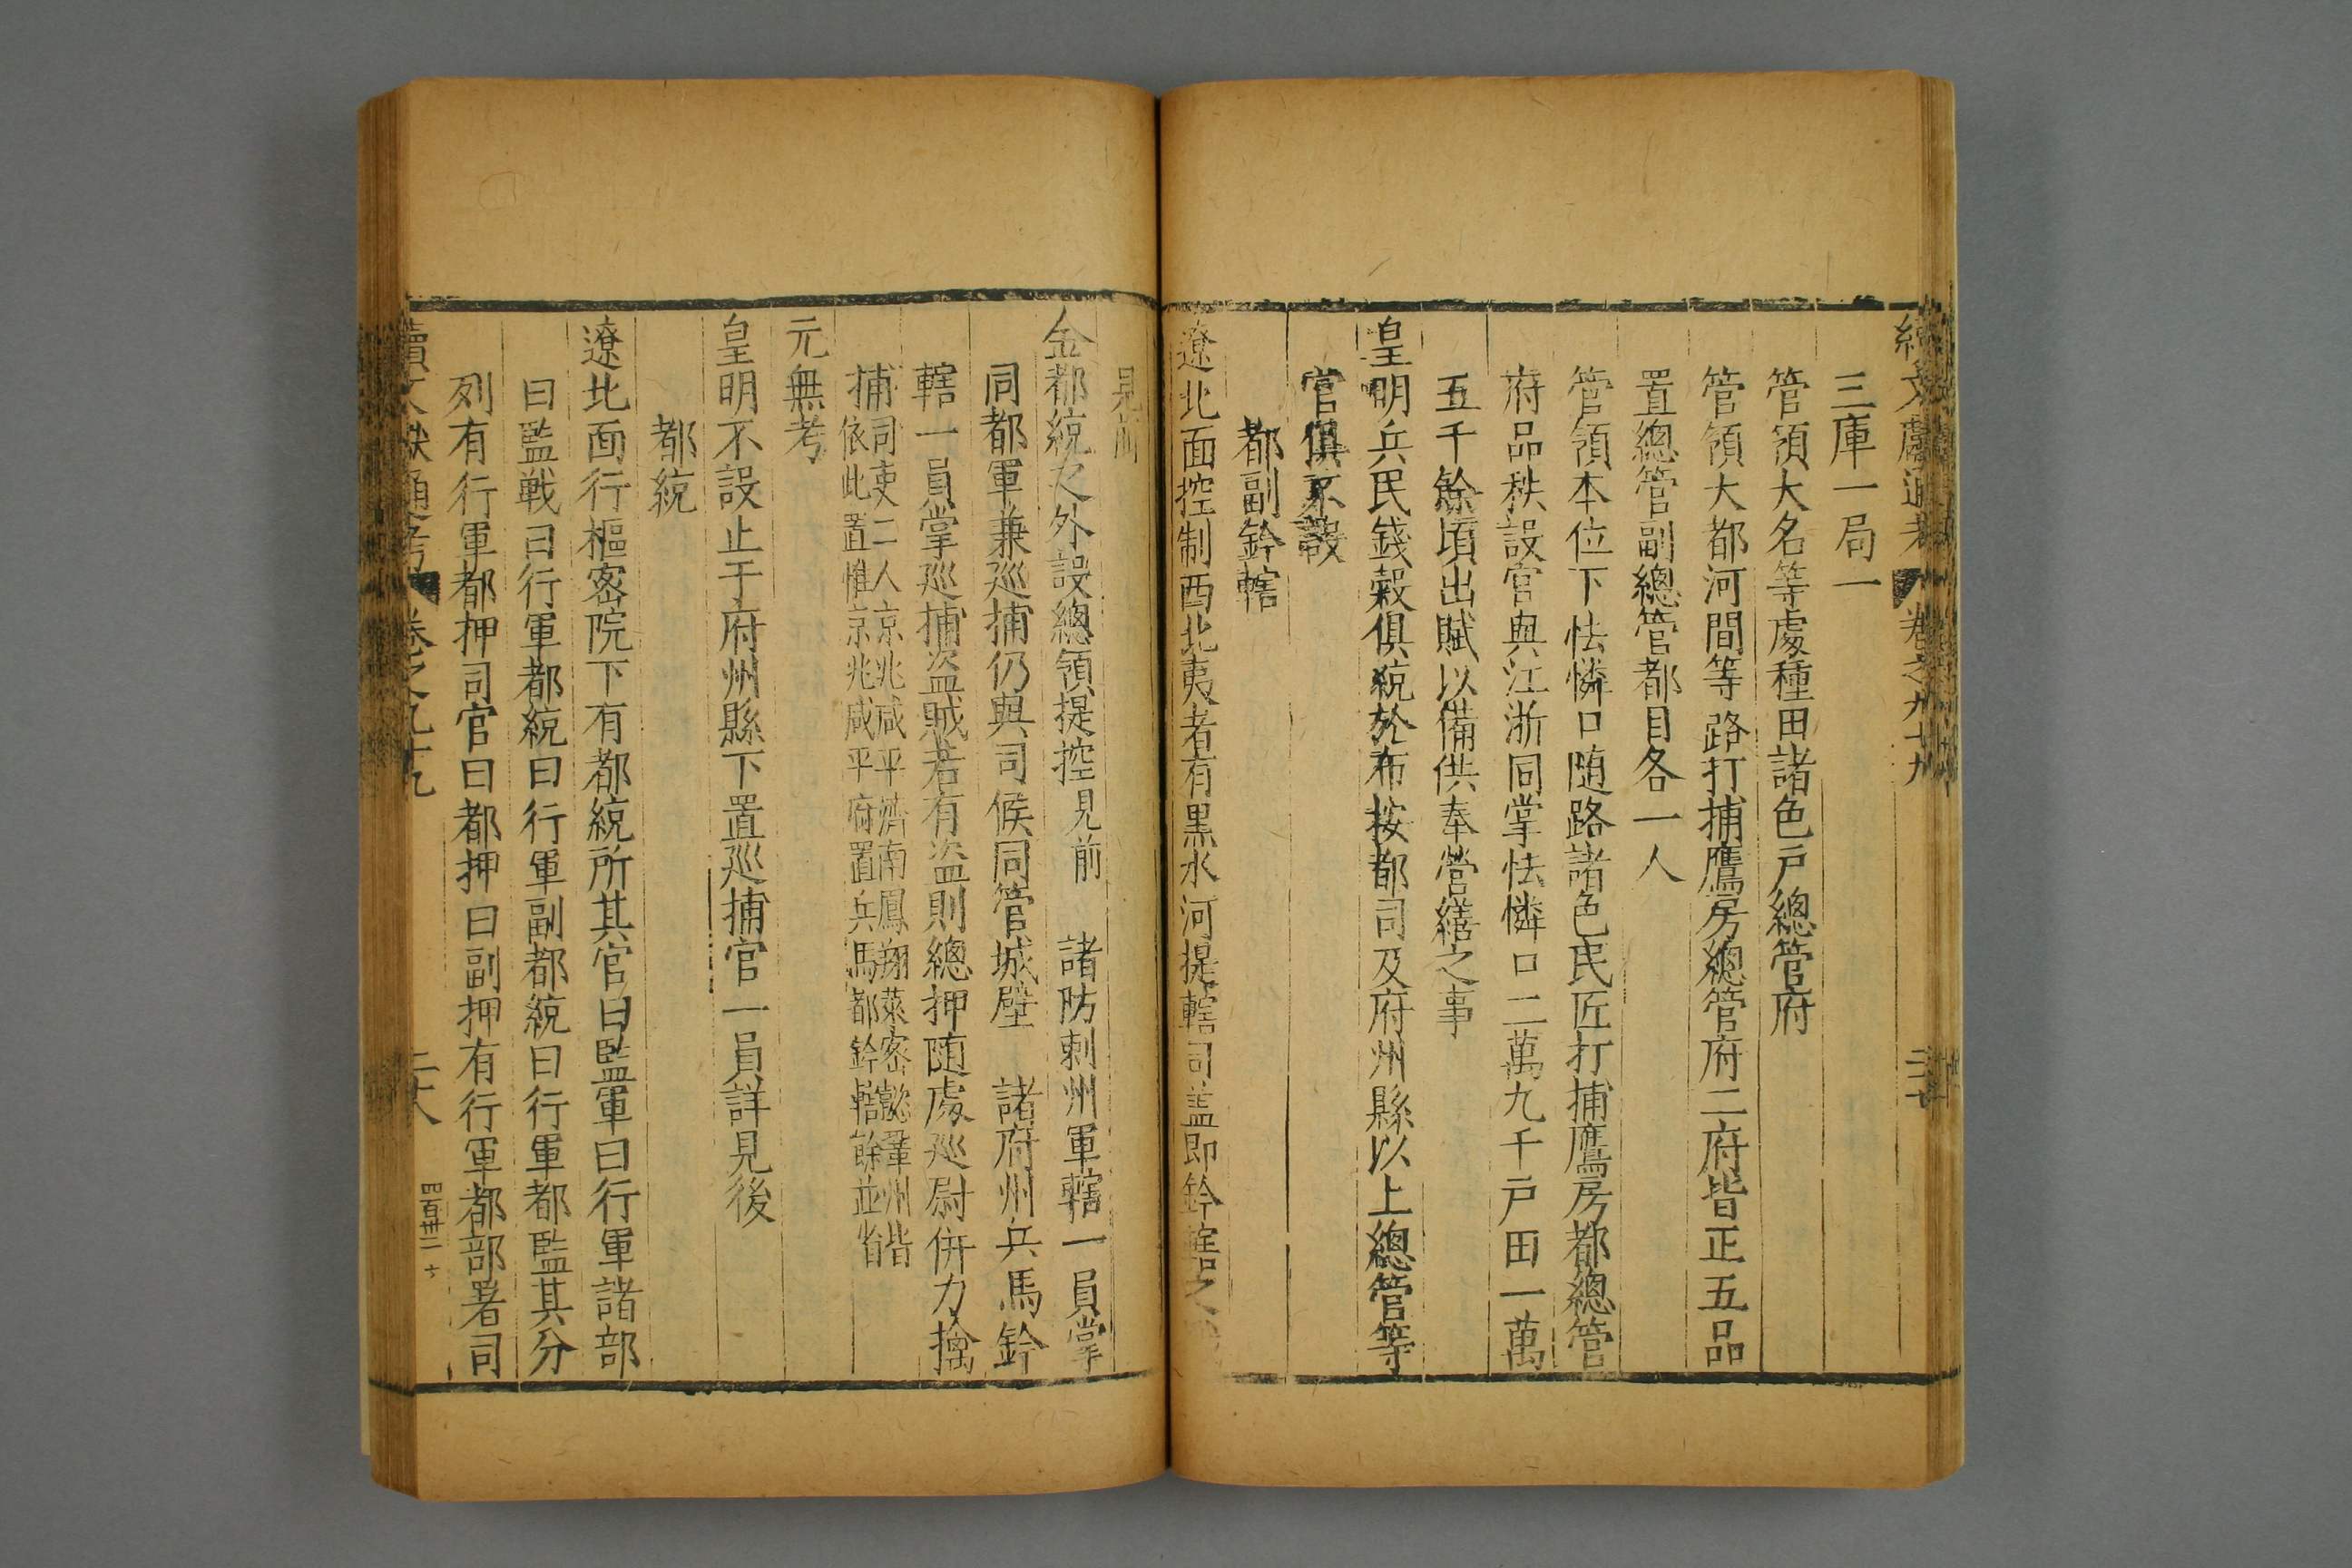 續文獻通考 卷之九十九
三庫一局一
管領大名等處種田諸色戸總管府
管領大都河間等路打捕鷹房總管府二府皆正五品
置總管副總管都目各一人
管領本位下怯憐口随路諸色民匠打捕鷹房都總管
府品秩設官與江浙同掌怯憐口二萬九千戸田一萬
五千餘頃出賦以備供奉營繕之事
皇明兵民錢穀俱統於布按都司及府州縣以上總管等
官俱不設
都副鈐轄
遼北面控制西北夷者有黒水河提轄司蓋即鈐轄之
見前
金都統之外設總領提控見前 諸防刺州軍轄一員掌
同都軍兼巡捕仍與司候同管城壁 諸府州兵馬鈐
轄一員掌巡捕盜賊若有盜則總押随處巡尉併力擒
捕司吏二人京兆咸平濟南鳳翔萊密懿鞏州皆
依此置惟京兆咸平府置兵馬都鈐轄餘並省
元無考
皇明不設止于府州縣下置巡捕官一員詳見後
都統
遼北面行樞密院下有都統所其官曰監軍曰行軍諸部
曰監戰曰行軍都統曰行軍副都統曰行軍都監其分
列有行軍都押司官曰都押曰副押有行軍都部署司
續文獻通考 卷之九十九 二十八 四百卅二